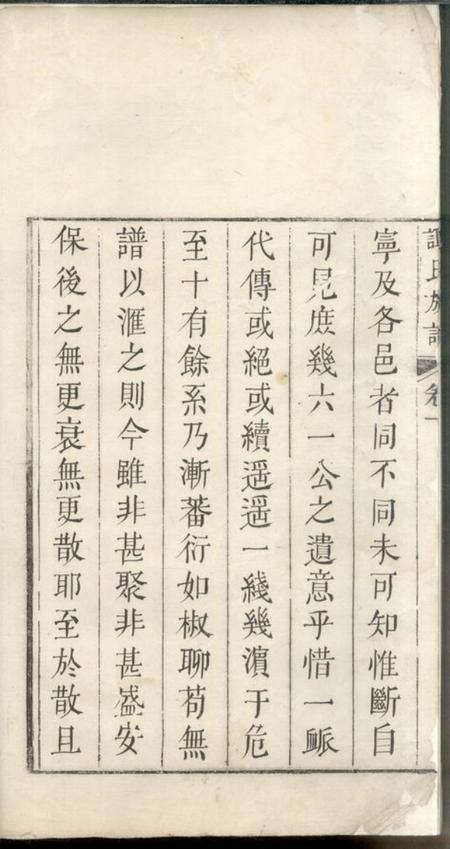 氏族譜 卷一
寧及各邑者同不同未可知惟斷自
可見庶幾六一公之遺意乎惜一脈
代傳或絕或續遥遥一綫幾濵于危
至十有餘系乃漸蕃衍如椒聊茍無
譜以滙之則今雖非甚聚非甚盛安
保後之無更衰無更散耶至於散且